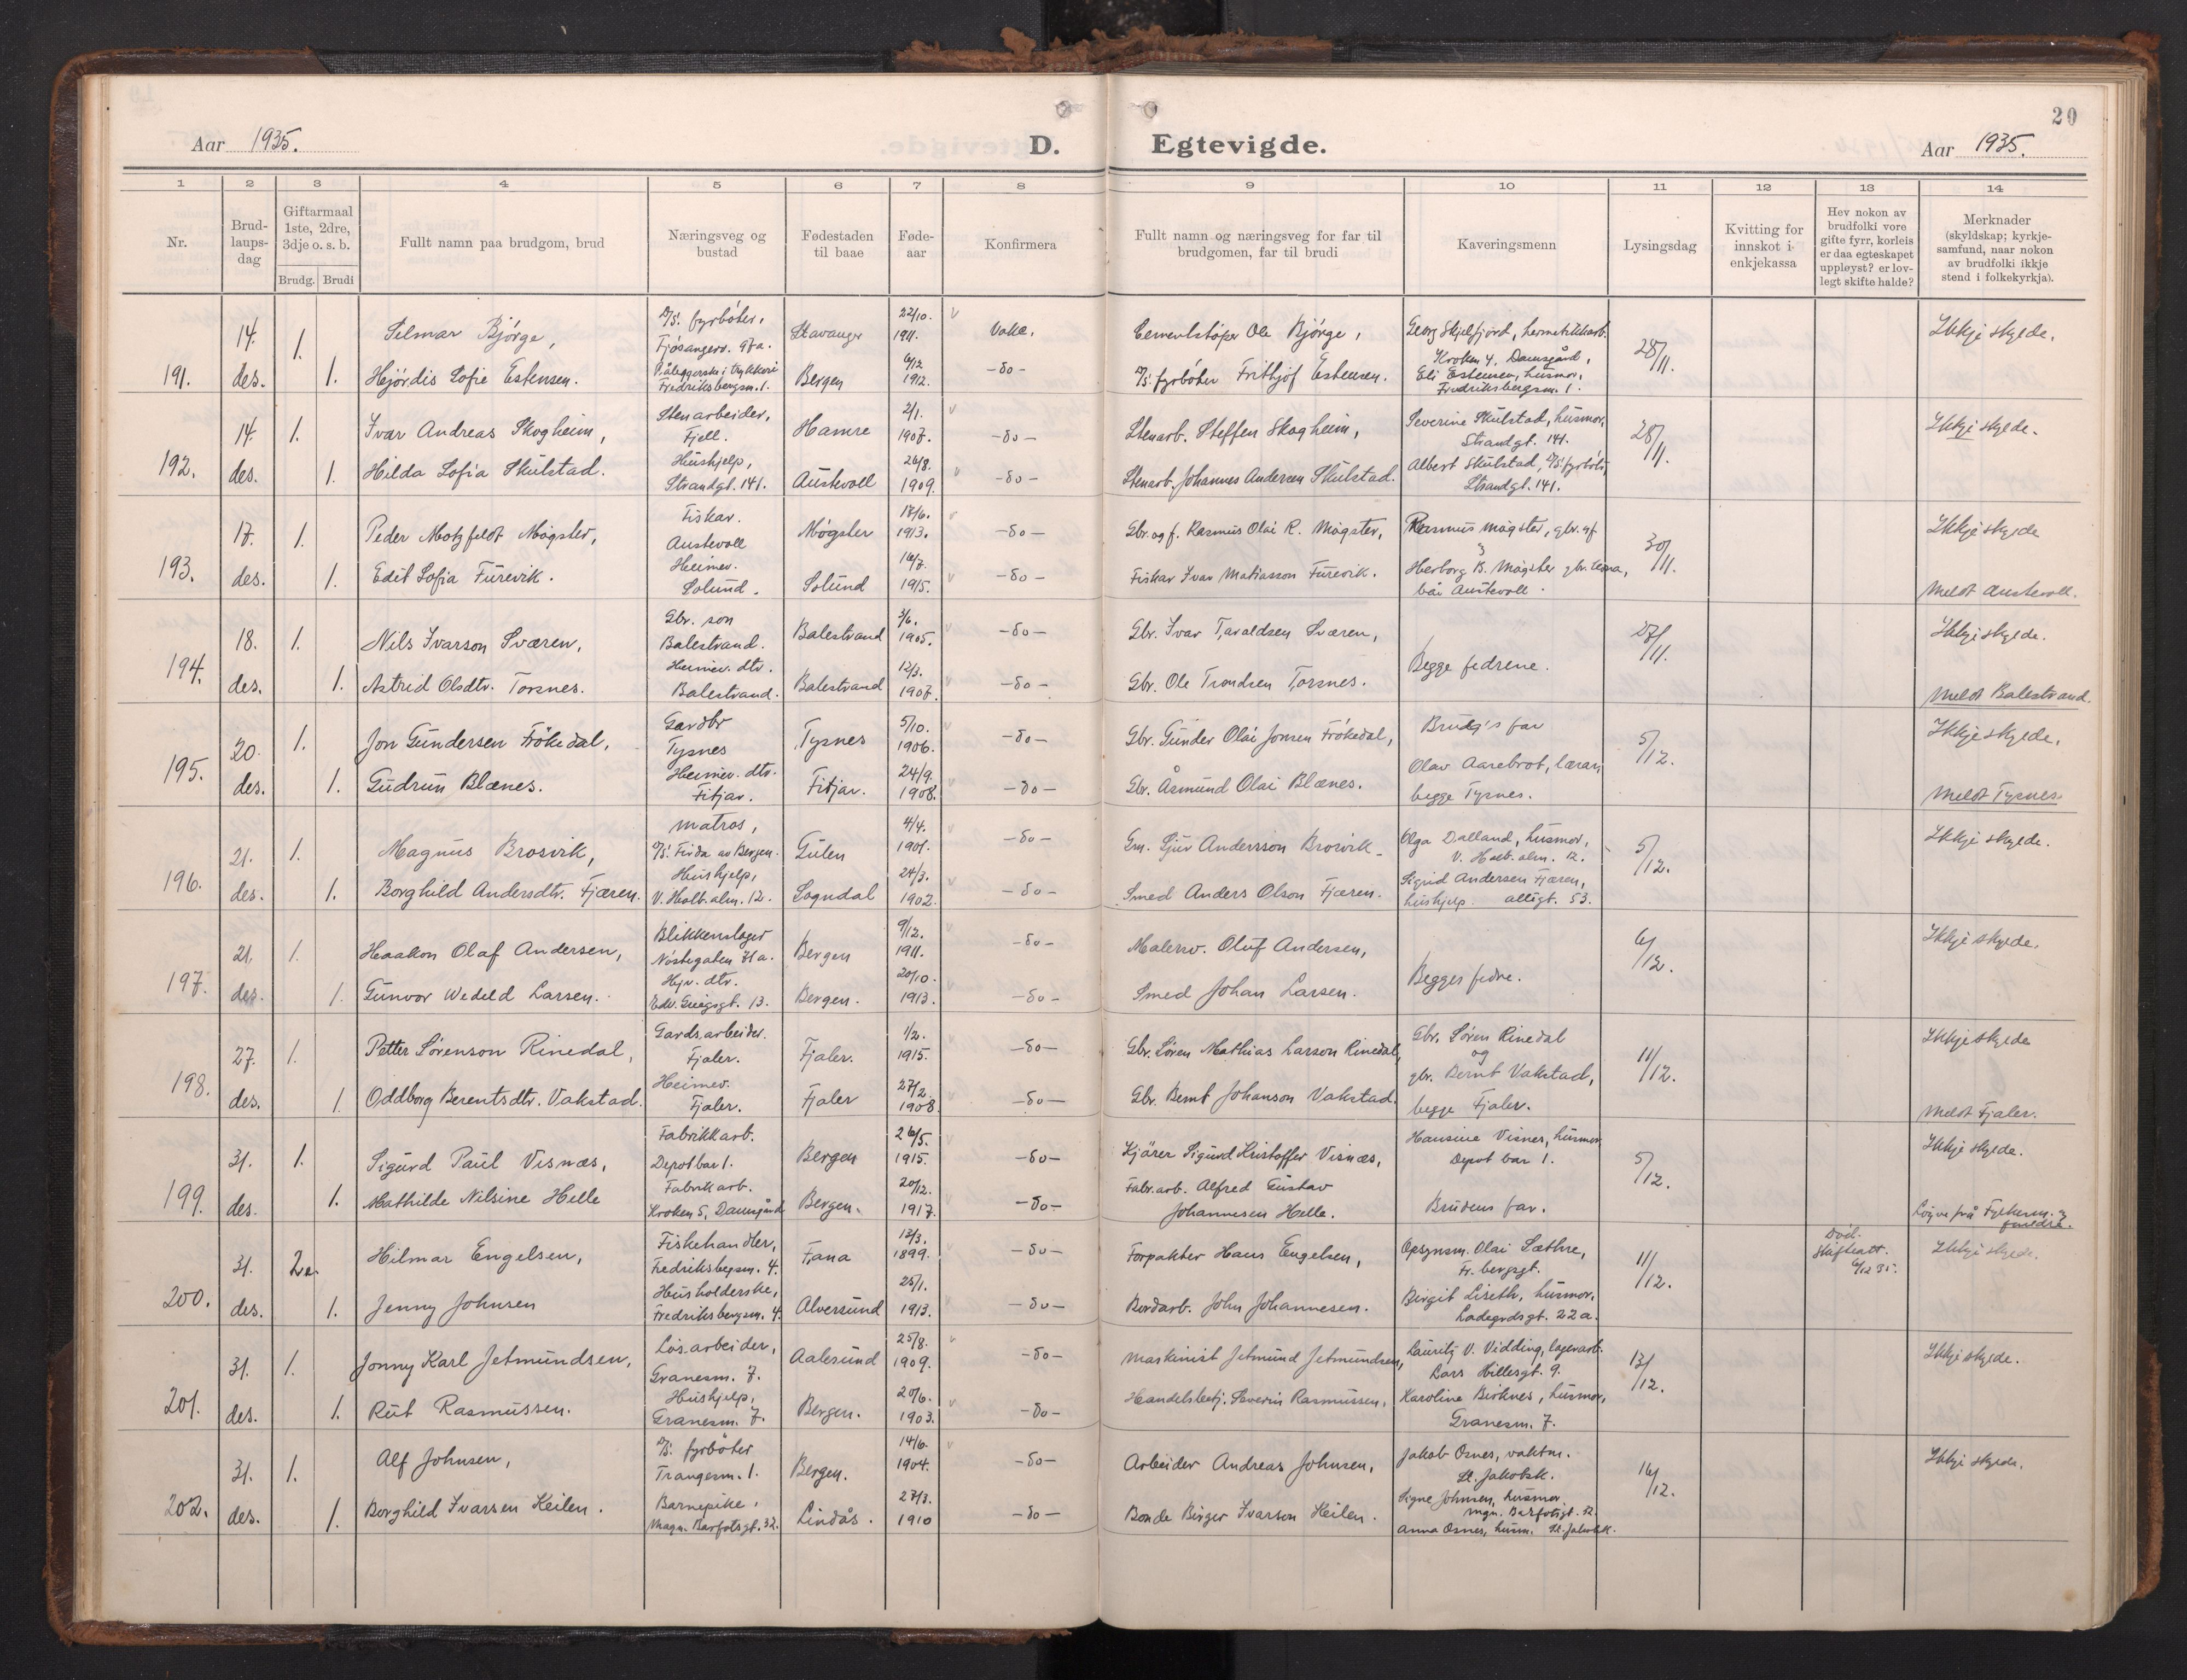 20
Aar 1935. D. Egtevigde. Aar 1935.
1 2 3 4 5 6 7 8 9 10 11 12 13 14
Nr.
Brud-
laups-
dag
Giftarmaal
1ste, 2dre,
3dje o. s. b.
Brudg. Brudi
Fullt namn paa brudgom, brud
Næringsveg og
bustad
Fødestaden
til baae
Føde-
aar
Konfirmera
Fullt namn og næringsveg for far til
brudgomen, far til brudi
Kaveringsmenn
Lysingsdag
Kvitting for
innskot i
enkjekassa
Hev nokon av
brudfolki vore
gifte fyrr, korleis
er daa egteskapet
uppløyst? er lov-
legt skifte halde?
Merknader
(skyldskap; kyrkje-
samfund, naar nokon
av brudfolki ikkje
stend i folkekyrkja).
191. 14. des. 1. 1.
Selmar Bjørge,
Hjørdis Sofie Estensen.
D/S. fyrbøter,
Fjøsangerv. 97a.
Påleggerske i trykkeri
Fredriksbergsm. 1.
Stavanger
Bergen
22/10. 1911.
6/12 1912.
Vaks.
-do-
Cementstøper Ole Bjørge,
D/S. fyrbøter Frithjof Estensen.
Georg Skjelfjord, hermetikkarb.
Kroken 4, Damsgård,
Eli Estensen, husmor,
Fredriksbergsm. 1.
28/11.
Ikkje skylde.
192. 14. des. 1. 1.
Ivar Andreas Skogheim,
Hilda Sofia Skulstad.
Stenarbeider,
Fjell.
Hushjelp,
Strandgt. 141.
Hamre
Austevoll
2/1. 1907.
26/8. 1909.
-do-
-do-
Stenarb. Steffen Skogheim,
Stenarb. Johannes Andersen Skulstad.
Severine Skulstad, husmor,
Strandgt. 141.
Albert Skulstad, D/S. fyrbøter,
Strandgt. 141.
28/11.
Ikkje skylde.
193. 17. des. 1. 1.
Peder Motzfeldt Møgster,
Edit Sofia Furevik.
Fiskar.
Austevoll
Heimev.
Solund.
Møgster
Solund
17/6. 1913.
16/7. 1915.
-do-
-do-
Gbr. og f. Rasmus Olai R. Møgster,
Fiskar Ivar Matiasson Furevik.
Rasmus Møgster, gbr. og f.
Herborg B. Møgster gbr. kona,
bæi Austevoll.
30/11.
Ikkje skylde
Meldt Austevoll.
194. 18. des. 1. 1.
Nils Ivarson Sværen,
Astrid Olsdtr. Torsnes.
Gbr. son
Balestrand.
Heimev. dtr.
Balestrand.
Balestrand
Balestrand
3/6. 1905.
12/3. 1907.
-do-
-do-
Gbr. Ivar Taraldsen Sværen,
Gbr. Ole Trondsen Torsnes.
Begge fedrene.
27/11.
Ikkje skylde.
Meldt Balestrand.
195. 20. des. 1. 1.
Jon Gundersen Frøkedal,
Gudrun Blænes.
Gardbr
Tysnes
Heimev. dtr.
Fitjar.
Tysnes
Fitjar.
5/10. 1906.
24/9. 1908.
-do-
-do-
Gbr. Gunder Olai Jonsen Frøkedal,
Gbr. Åsmund Olai Blænes.
Brudg's far
Olav Aarebrot, lærar,
begge Tysnes.
5/12.
Ikkje skylde.
Meldt Tysnes.
196. 21. des. 1. 1.
Magnus Brosvik,
Borghild Andersdtr. Fjæren.
Matros,
D/S. Firda av Bergen.
Hushjelp,
V. Holb. alm. 12.
Gulen
Sogndal
4/4. 1901.
24/3. 1902.
-do-
-do-
Gm. Sjur Andersson Brosvik
Smed Anders Olson Fjæren.
Olga Dalland, husmor,
V. Holb. alm. 12.
Sigrid Andersen Fjæren,
hushjelp. allégt. 53.
5/12.
Ikkje skylde.
197. 21. des. 1. 1.
Haakon Olaf Andersen,
Gunvor Wedeld Larsen.
Blikkenslager
Nøstegaten 71a.
Hjv. dtr.
Edv. Griegsgt. 13.
Bergen
Bergen.
9/12. 1911.
20/10. 1913.
-do-
-do-
Malersv. Oluf Andersen,
Smed Johan Larsen.
Begges fedre.
6/12.
Ikkje skylde.
198. 27. des. 1. 1.
Petter Sørenson Rinedal,
Oddborg Berentsdtr. Vakstad.
Gardsarbeider.
Fjaler.
Heimev.
Fjaler.
Fjaler.
Fjaler
1/2. 1915.
27/2. 1908.
-do-
-do-
Gbr. Søren Mathias Larson Rinedal,
Gbr. Bernt Johanson Vakstad.
Gbr. Søren Rinedal
og
gbr. Bernt Vakstad,
begge Fjaler.
11/12.
Ikkje skylde
Meldt Fjaler.
199. 31. des. 1. 1.
Sigurd Paul Visnæs,
Mathilde Nilsine Helle
Fabrikkarb.
Depotbar 1.
Fabrikarb.
Kroken 5, Damsgård
Bergen
Bergen.
26/5. 1915.
20/12. 1917.
-do-
-do-
Kjører Sigurd Kristoffer Visnæs,
Fabr. arb. Alfred Gustav
Johannesen Helle.
Hansine Visnes, husmor
Depot bar 1.
Brudens far.
5/12.
Ikkje skylde.
Løyve frå Fylkesm. og foreldre.
200. 31. des. 2. 1.
Hilmar Engelsen,
Jenny Johnsen
Fiskehandler,
Fredriksbergsm. 4.
Husholderske,
Fredriksbergsm. 4.
Fana
Alversund
13/3. 1899.
25/1. 1913.
-do-
-do-
Forpakter Hans Engelsen,
Bordarb. John Johannesen.
Opsynsm. Olai Sæthre,
Fr. bergsgt.
Birgit Liseth, husmor,
Ladegrdsgt. 22a.
11/12.
Død.
Skifteatt.
6/12 35.
Ikkje skylde.
201. 31. des. 1. 1.
Jonny Karl Jetmundsen,
Rut Rasmussen.
Løsarbeider,
Granesm. 7.
Hushjelp,
Granesm. 7.
Aalesund
Bergen.
25/8. 1909.
20/6. 1903.
-do-
-do-
Maskinist Jetmund Jetmundsen,
Handelsbetj. Severin Rasmussen,
Lauritz V. Vidding, lagerarb.
Lars Hillesgt. 9.
Karoline Birknes, husmor,
Granesm. 7.
13/12.
Ikkje skylde.
202. 31. des. 1. 1.
Alf Johnsen,
Borghild Ivarsen Keilen.
D/S. fyrbøter
Trangesm. 1.
Barnepike,
Magn. Barfotsgt. 32.
Bergen.
Lindås.
14/6. 1904.
27/3. 1910
-do-
-do-
Arbeider Andreas Johnsen,
Bonde Birger Ivarson Keilen.
Jakob Osnes, vaktm.
St. Jakobsk.
Signe Johnsen, husmor
Mgn. Barfotsgt. 32.
Anna Osnes, husm. St. Jakobsk.
16/12.
Ikkje skylde.